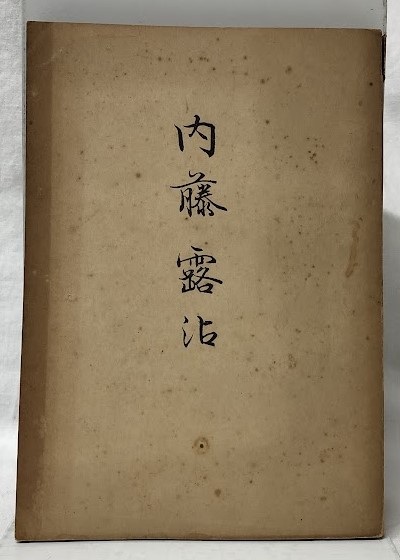 内藤露沾